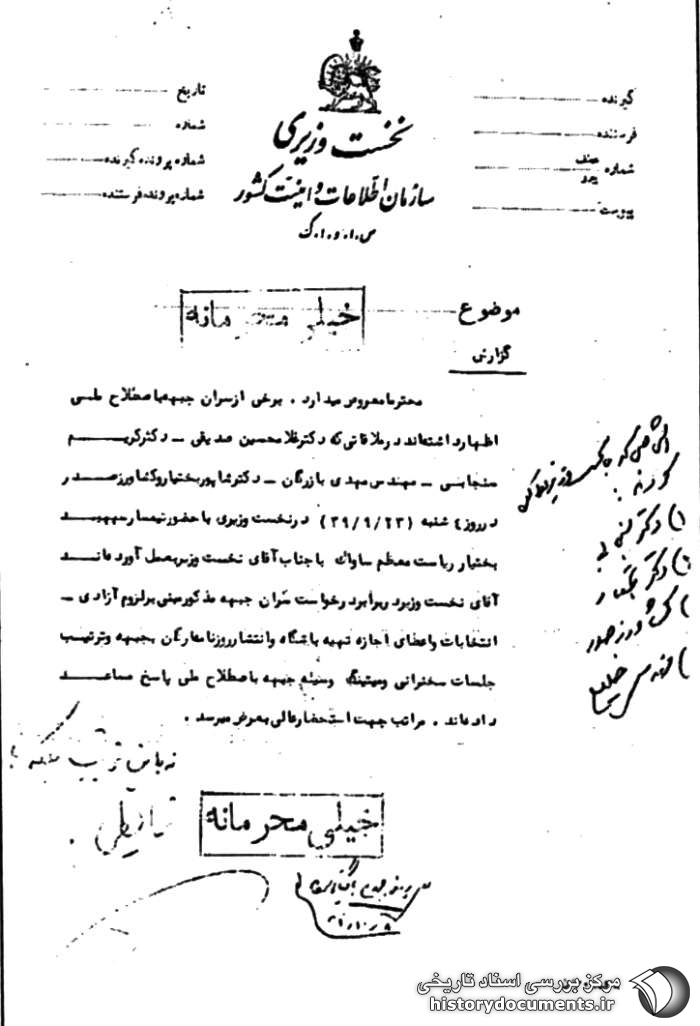 نخست وزیری
سازمان اطلاعات و امنیت کشور
س.ا.و.ا.ک
گیرنده
فرستنده
شماره
پیوست
تاریخ
شماره
شماره پرونده گیرنده
شماره پرونده فرستنده
موضوع
خیلی محرمانه
گزارش
محترما معروض میدارد . برخی از سران جبهه باصطلاح ملی
اظهار داشته‌اند در ملاقاتی که دکتر غلامحسین صدیقی – دکتر کریم
سنجابی – مهندس مهدی بازرگان – دکتر شاپور بختیار و کشاورز صدر
در روز ٤ شنبه (٣٩/٩/٢٣) در نخست وزیری با حضور تیمسار سپهبد
بختیار ریاست معظم ساواک با جناب آقای نخست وزیر بعمل آورده‌اند
آقای نخست وزیر در برابر درخواست سران جبهه مذکور مبنی بر لزوم آزادی –
انتخابات و اعطای اجازه تهیه باشگاه و انتشار روزنامه ارگان جبهه و ترتیب
جلسات سخنرانی و میتینگ وسیله جبهه باصطلاح ملی پاسخ مساعد
داده‌اند . مراتب جهت استحضار عالی بعرض میرسد .
خیلی محرمانه
دکتر
دکتر بختیار
کشاورز صدر
مرکز بررسی اسناد تاریخی
historydocuments.ir